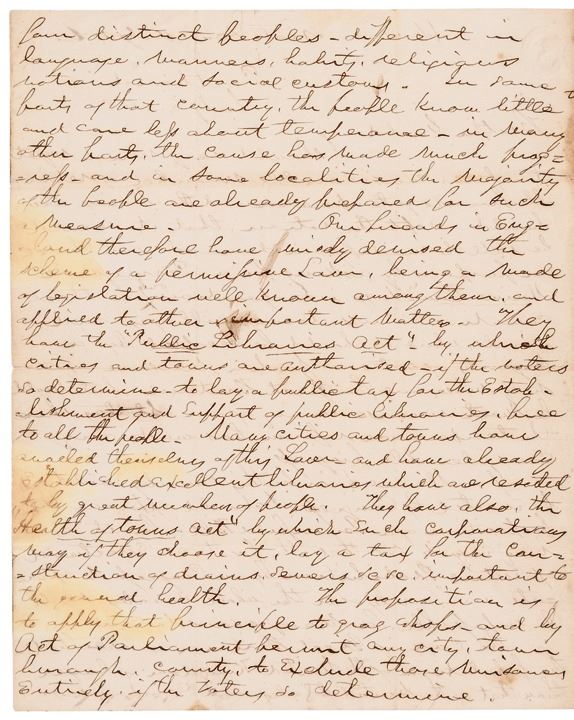 four distinct peoples - different in
language, manners, habits, religious
notions and social customs. In some
parts of that country, the people know little
and care less about temperance - in many
other parts, the cause has made much prog=
=ress - and in some localities the majority
of the people are already prepared for such
a measure. Our friends in Eng=
=land therefore have wisely devised the
scheme of a permissive Law, being a mode
of legislation well known among them, and
applied to other important matters. They
have the "Public Libraries Act", by which
cities and towns are authorised - if the voters
so determine to lay a public tax for the Estab=
=lishment and support of public libraries, free
to all the people. Many cities and towns have
availed themselves of this Law - and have already
established excellent libraries which are resorted
to by great numbers of people. They have also, the
"Health of towns Act" by which such corporations
may if they choose it, lay a tax for the con=
=struction of drains, sewers &c &c. important to
the general health. The proposition is
to apply that principle to grog shops - and by
Act of Parliament permit any city, town
burough, county, to exclude those nuisances
Entirely, if the voters so determine.